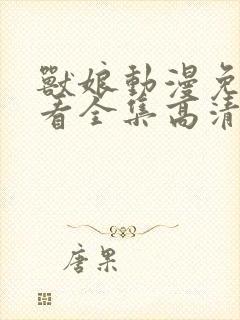 獸娘動漫免
看全集高清
唐果